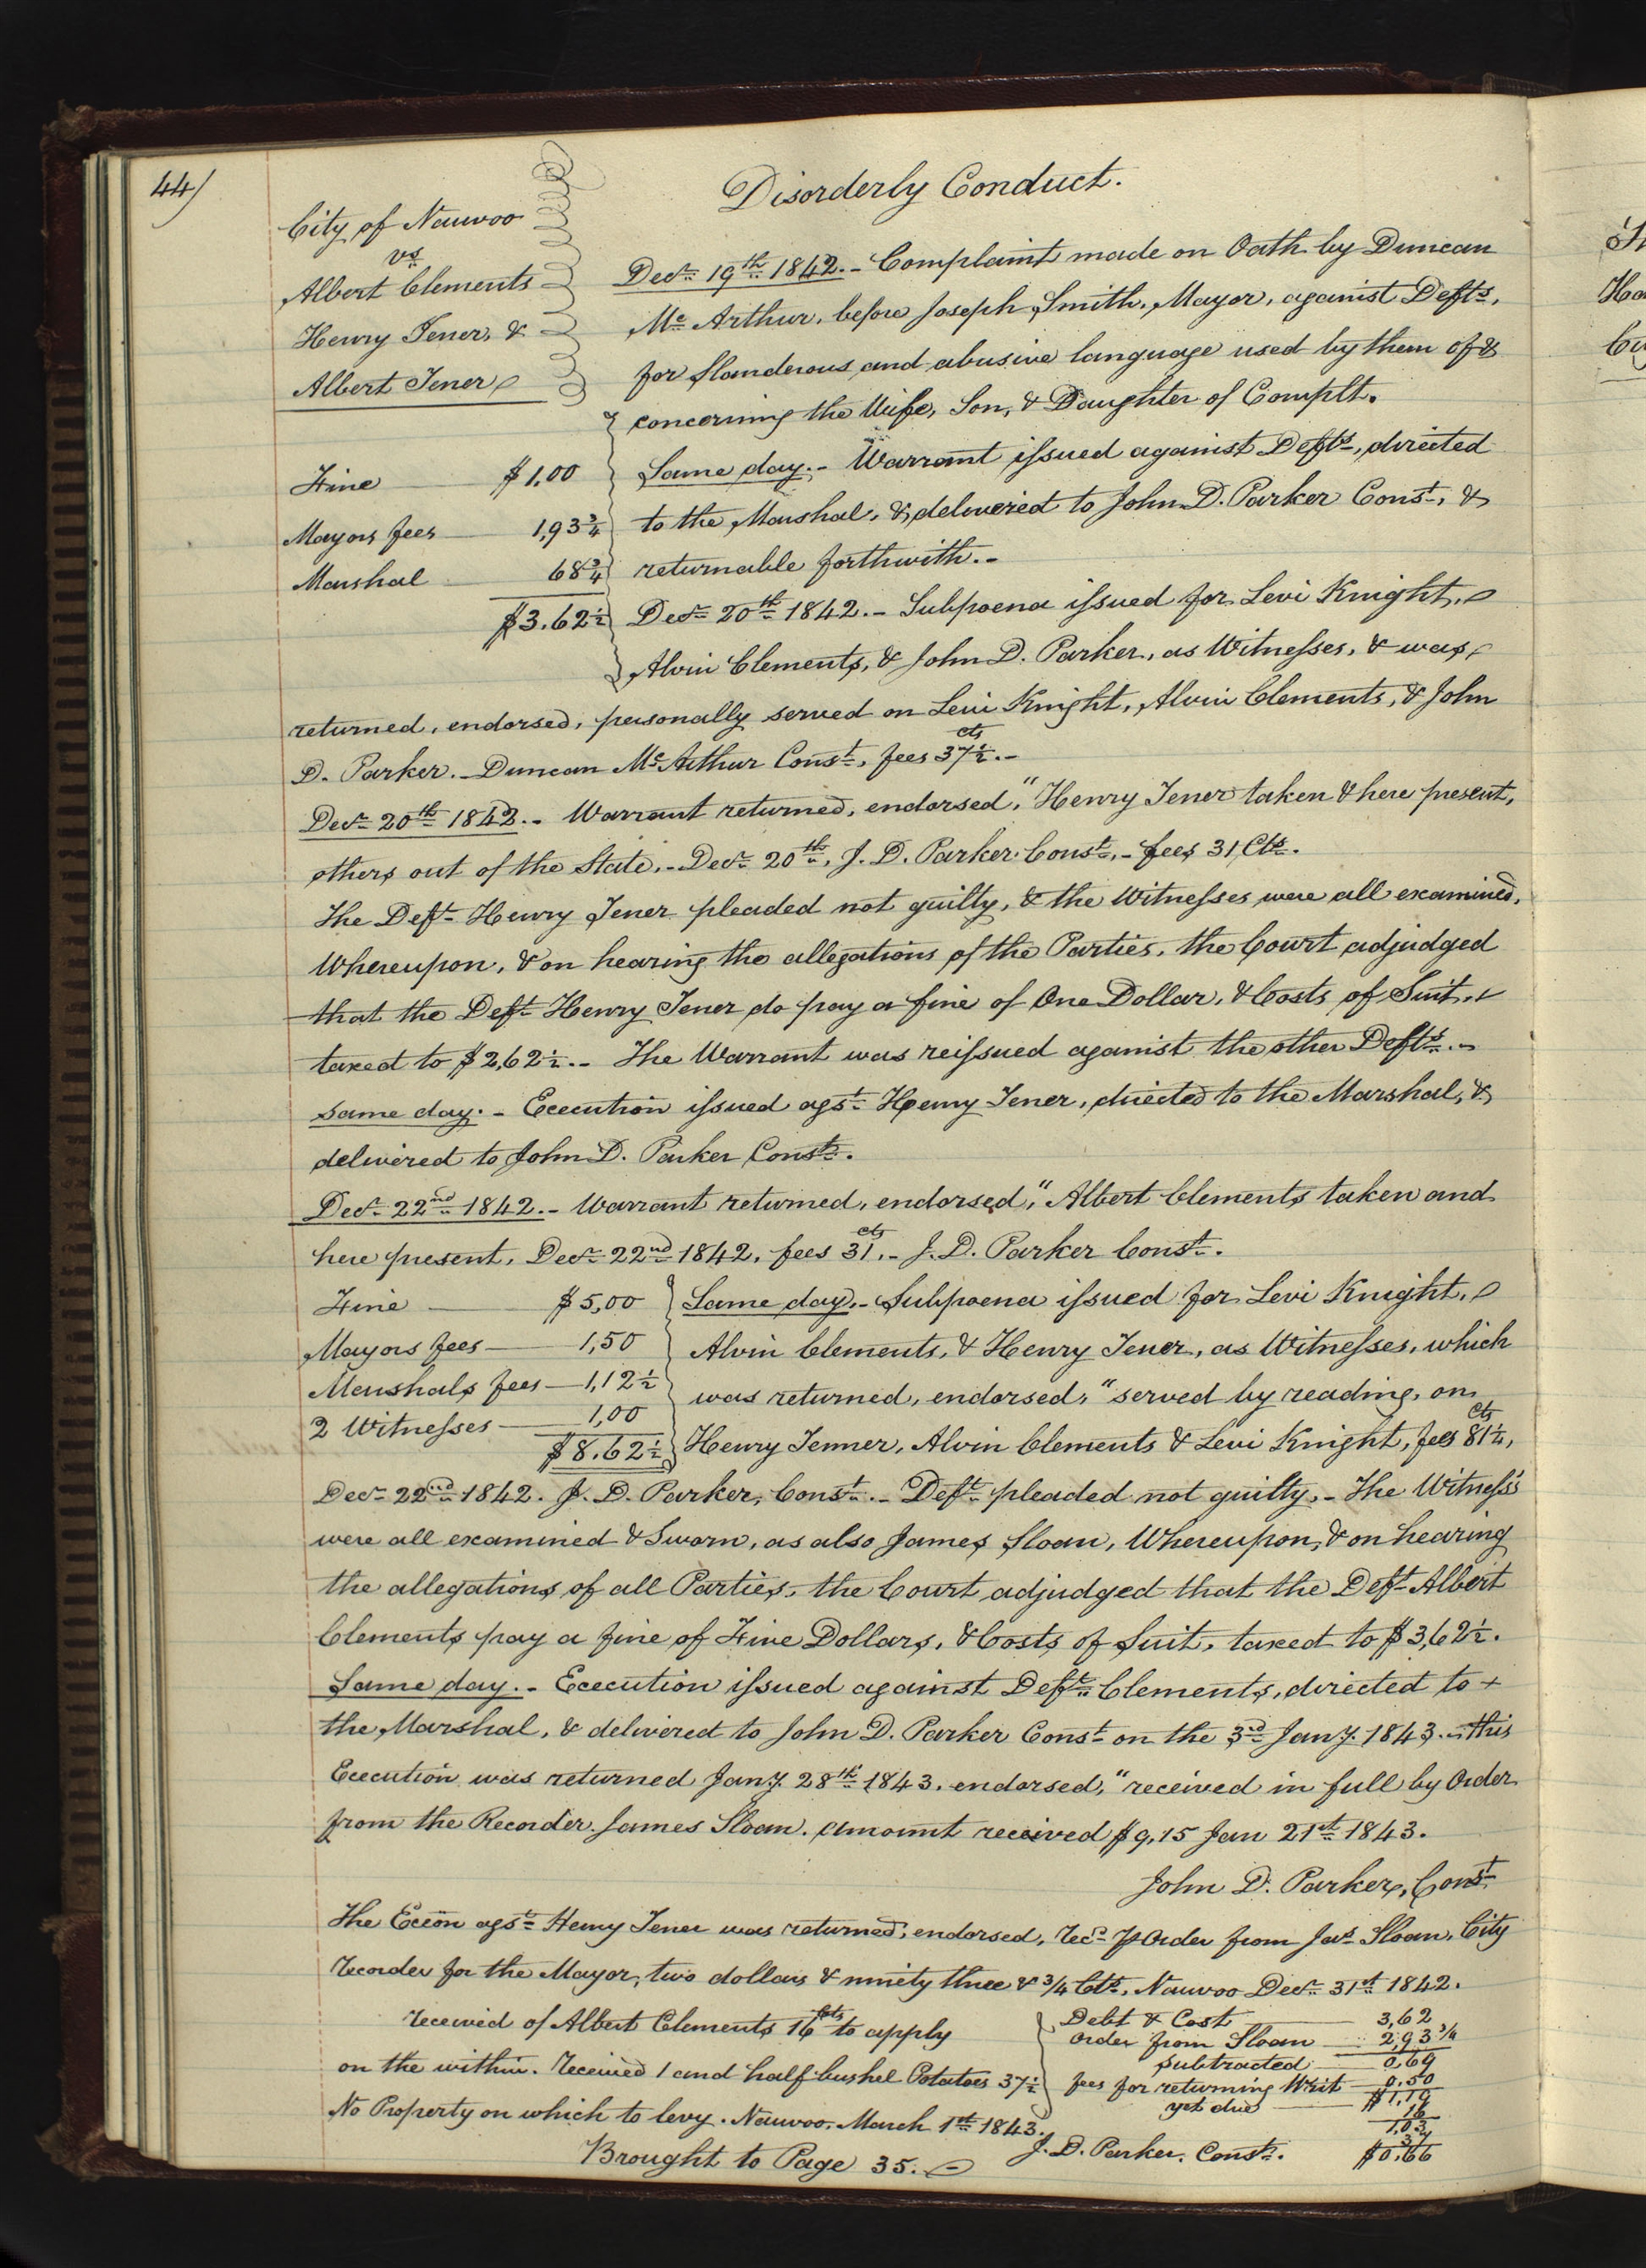 44)
Disorderly Conduct.
City of Nauvoo
vs
Albert Clements
Henry Jener, &
Albert Jener
Decr 19th 1842. - Complaint made on Oath by Duncan
Mc Arthur, before Joseph Smith, Mayor, against Defts,
for slanderous and abusive language used by them of &
concerning the Wife, Son, & Daughter of Complt.
Fine $1.00
Mayors fees 1,93 3/4
Marshal 68 3/4
$3.62 1/2
Same day. - Warrant issued against Defts, directed
to the Marshal, & delivered to John D. Parker Const, &
returnable forthwith. -
Decr 20th 1842. - Subpoena issued for Levi Knight,
Alvin Clements, & John D. Parker, as Witnesses, & was
returned, endorsed, personally served on Levi Knight, Alvin Clements, & John
D. Parker. - Duncan Mc Arthur Const, fees 37 1/2 cts. -
Decr 20th 1842. - Warrant returned, endorsed, "Henry Jener taken & here present,
others out of the State. - Decr 20th, J. D. Parker Const, - fees 31 Cts.
The Deft Henry Jener pleaded not guilty, & the Witnesses were all examined,
Whereupon, & on hearing the allegations of the Parties, the Court adjudged
that the Deft Henry Jener do pay a fine of One Dollar, & Costs of Suit,
taxed to $2,62 1/2. - The Warrant was reissued against the other Defts. -
same day. - Execution issued agst Henry Jener, directed to the Marshal, &
delivered to John D. Parker Const.
Decr 22nd 1842. - Warrant returned, endorsed, "Albert Clements taken and
here present, Decr 22nd 1842, fees 31 cts. - J. D. Parker Const.
Fine $5,00
Mayors fees 1,50
Marshals fees 1,12 1/2
2 Witnesses 1,00
$8.62 1/2
Same day. - Subpoena issued for Levi Knight,
Alvin Clements, & Henry Jener, as Witnesses, which
was returned, endorsed, "served by reading, on
Henry Jenner, Alvin Clements & Levi Knight, fees 81 1/4 cts,
Decr 22nd 1842. J. D. Parker, Const. - Deft pleaded not guilty, - The Witness's
were all examined & Sworn, as also James Sloan, Whereupon, & on hearing
the allegations of all Parties, the Court adjudged that the Deft Albert
Clements pay a fine of Five Dollars, & Costs of Suit, taxed to $3,62 1/2.
Same day. - Execution issued against Deft Clements, directed to
the Marshal, & delivered to John D. Parker Const on the 3rd Jany. 1843. - this
Execution was returned Jany. 28th 1843. endorsed, "received in full by Order
from the Recorder. James Sloan. amount received $9,15 Jan 21st 1843.
John D. Parker, Const
The Exeon agst Henry Jener was returned, endorsed, Recd Pr Order from Jas Sloan, City
Recorder for the Mayor, two dollars & ninety three & 3/4 Cts, Nauvoo Decr 31st 1842.
received of Albert Clements 16 cts to apply
on the within. Received 1 and half bushel Potatoes 37 1/2
No Property on which to levy. Nauvoo March 1st 1843.
Debt & Cost 3,62
order from Sloan 2,93 3/4
Subtracted 0,69
fees for returning Writ 0,50
yet due $1,19
16
1,03
37
$0,66
J. D. Parker, Const.
Brought to Page 35.